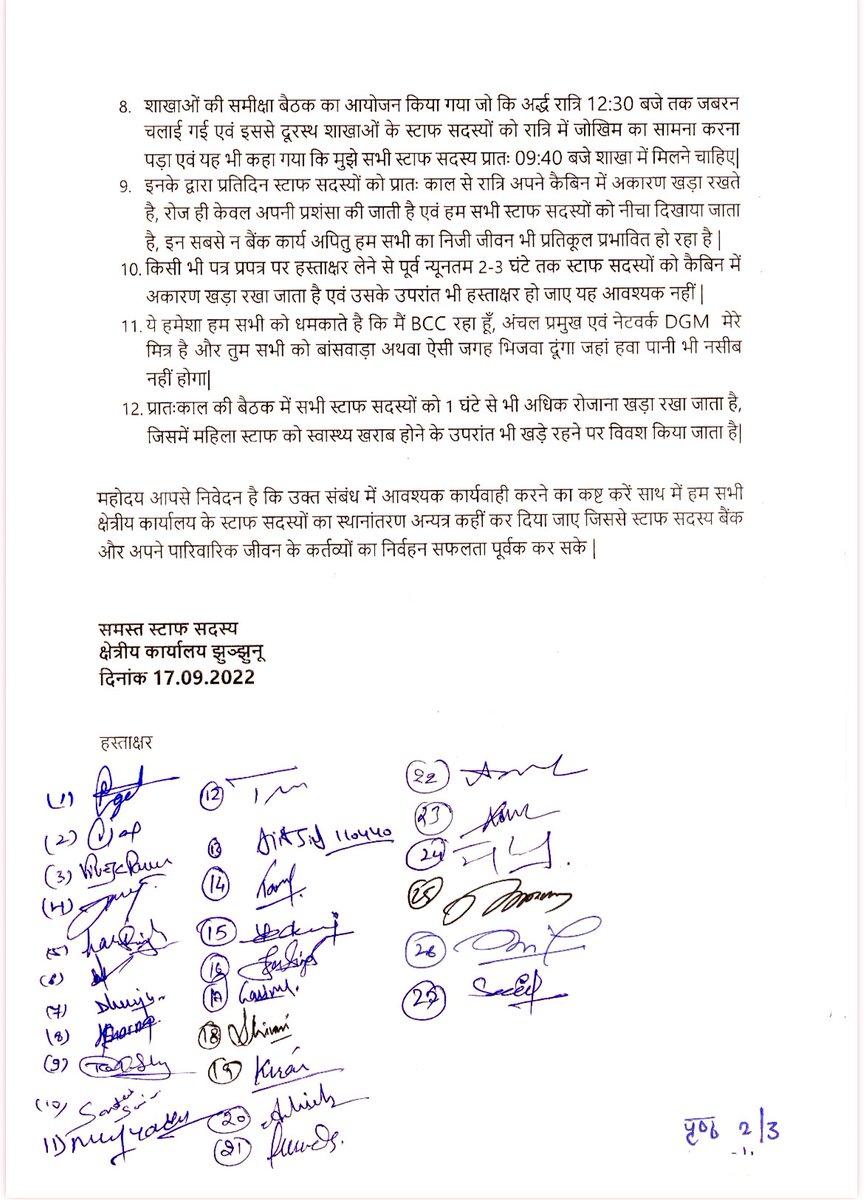 8. शाखाओं की समीक्षा बैठक का आयोजन किया गया जो कि अर्द्ध रात्रि 12:30 बजे तक जबरन
चलाई गई एवं इससे दूरस्थ शाखाओं के स्टाफ सदस्यों को रात्रि में जोखिम का सामना करना
पड़ा एवं यह भी कहा गया कि मुझे सभी स्टाफ सदस्य प्रातः 09:40 बजे शाखा में मिलने चाहिए|
9. इनके द्वारा प्रतिदिन स्टाफ सदस्यों को प्रातः काल से रात्रि अपने कैबिन में अकारण खड़ा रखते
है, रोज ही केवल अपनी प्रशंसा की जाती है एवं हम सभी स्टाफ सदस्यों को नीचा दिखाया जाता
है, इन सबसे न बैंक कार्य अपितु हम सभी का निजी जीवन भी प्रतिकूल प्रभावित हो रहा है |
10. किसी भी पत्र प्रपत्र पर हस्ताक्षर लेने से पूर्व न्यूनतम 2-3 घंटे तक स्टाफ सदस्यों को कैबिन में
अकारण खड़ा रखा जाता है एवं उसके उपरांत भी हस्ताक्षर हो जाए यह आवश्यक नहीं |
11. ये हमेशा हम सभी को धमकाते है कि मैं BCC रहा हूँ, अंचल प्रमुख एवं नेटवर्क DGM मेरे
मित्र है और तुम सभी को बांसवाड़ा अथवा ऐसी जगह भिजवा दूंगा जहां हवा पानी भी नसीब
नहीं होगा|
12. प्रातःकाल की बैठक में सभी स्टाफ सदस्यों को 1 घंटे से भी अधिक रोजाना खड़ा रखा जाता है,
जिसमें महिला स्टाफ को स्वास्थ्य खराब होने के उपरांत भी खड़े रहने पर विवश किया जाता है|
महोदय आपसे निवेदन है कि उक्त संबंध में आवश्यक कार्यवाही करने का कष्ट करें साथ में हम सभी
क्षेत्रीय कार्यालय के स्टाफ सदस्यों का स्थानांतरण अन्यत्र कहीं कर दिया जाए जिससे स्टाफ सदस्य बैंक
और अपने पारिवारिक जीवन के कर्तव्यों का निर्वहन सफलता पूर्वक कर सके |
समस्त स्टाफ सदस्य
क्षेत्रीय कार्यालय झुञ्झुनू
दिनांक 17.09.2022
हस्ताक्षर
(1)
(2)
(3)
(4)
(5)
(6)
(7)
(8)
(9)
(10)
11)
12
13 110440
14
15
16
17
18
19 Kiran
20
21
22
23
24
25
26
27
पृष्ठ 2/3